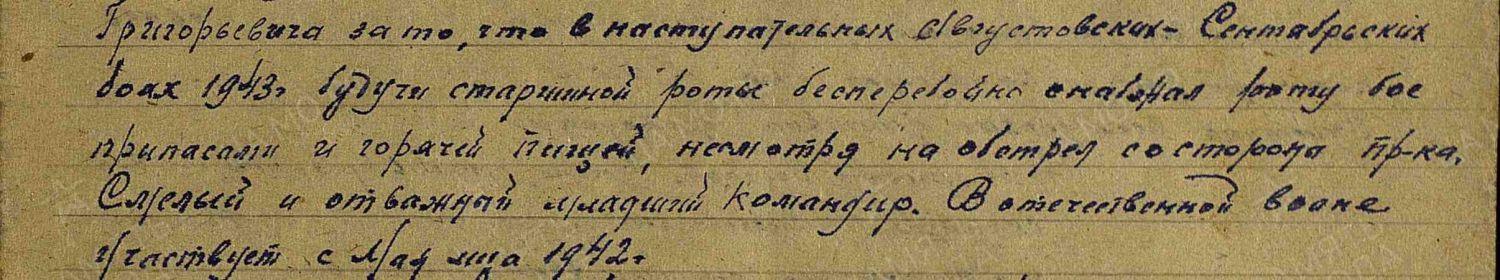 Григорьевича за то, что в наступательных Августовских- Сентабрьских
боях 1943г будучи старшиной роты бесперебойно снабжал роту бое
припасами и горячей пищей, несмотря на обстрел со стороны пр-ка.
Смелый и отважный младший командир. В отечественной воине
участвует с Мая м-ца 1942г